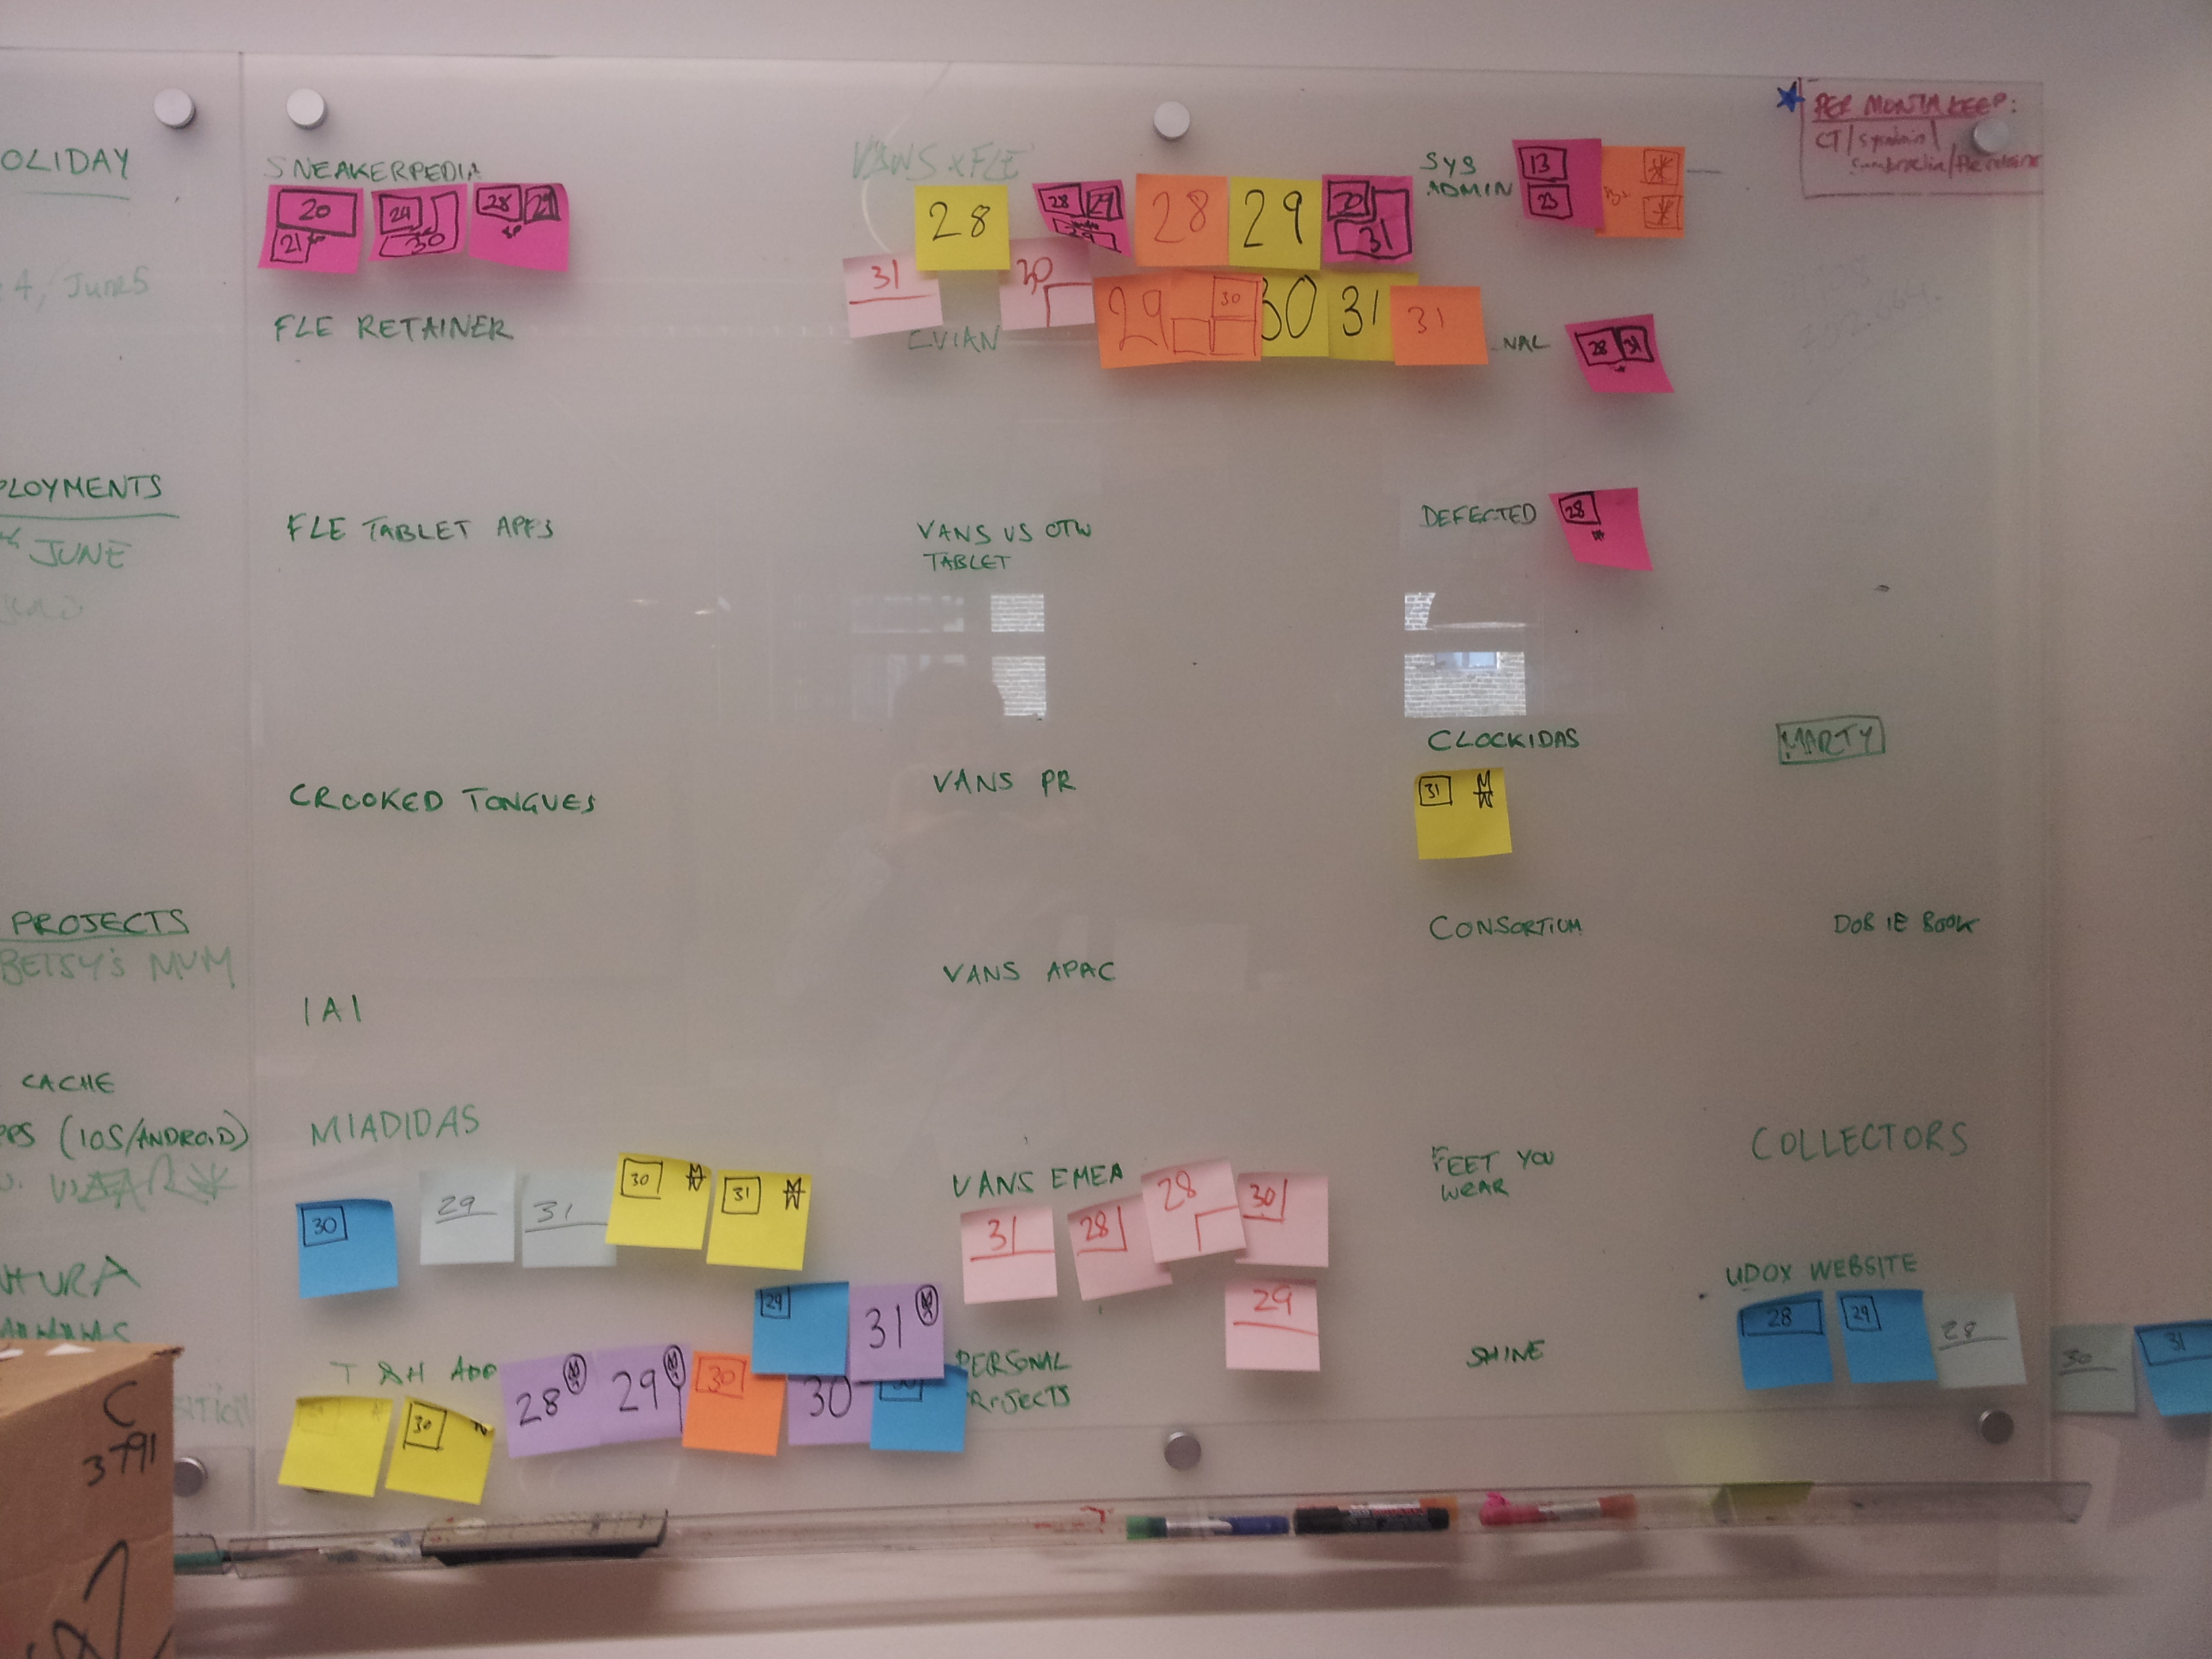 OLIDAY
4, June 5
PLOYMENTS
JUNE
PROJECTS
BETSY'S MUM
CACHE
PPS (IOS/ANDROID)
NTURA
C
3791
SNEAKERPEDIA
20
21
29
30
28 29
FLE RETAINER
FLE TABLET APPS
CROOKED TONGUES
IAI
MIADIDAS
30
29
31
30
31
29
31 M
T & H APP
30
28 M
29 M
30
30
30
VANS x FLE
28
28 29
29
28
29
30
31
31
30
29
30
30
31
31
EVIAN
VANS US OTW
TABLET
VANS PR
VANS APAC
VANS EMEA
31
28
28
30
29
PERSONAL
PROJECTS
SYS
ADMIN
13
23
NAL
28 31
DEFECTED
28
CLOCKIDAS
31
CONSORTIUM
FEET YOU
WEAR
SHINE
PER MONTH KEEP:
CT / sysadmin /
MARTY
DOBIE BOOK
COLLECTORS
UDOX WEBSITE
28
29
28
30
31